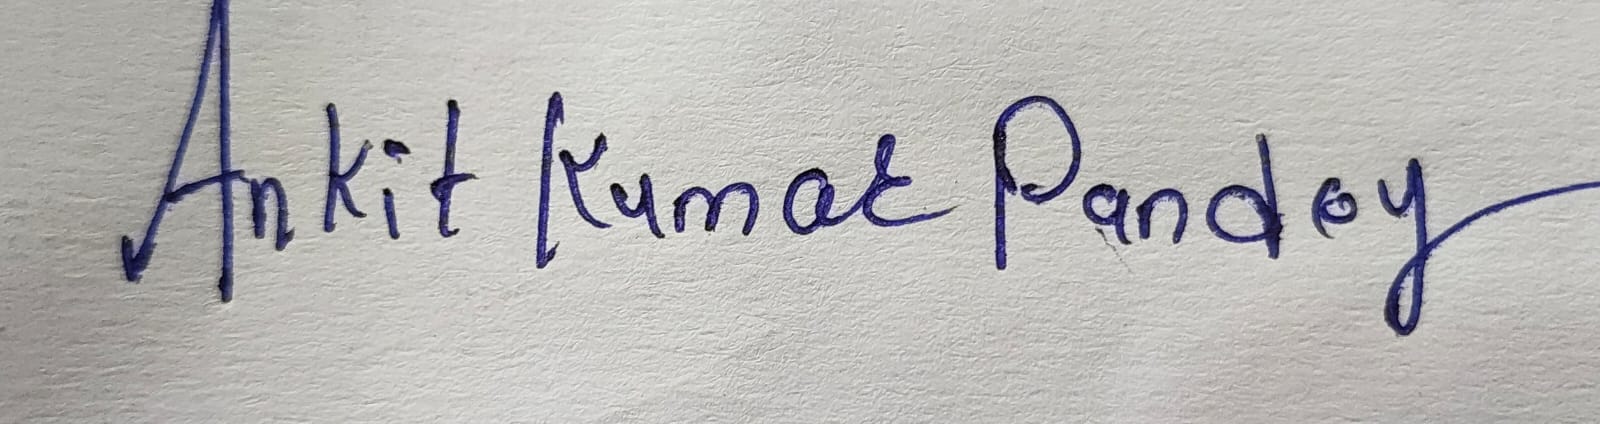 Ankit Kumar Pandey